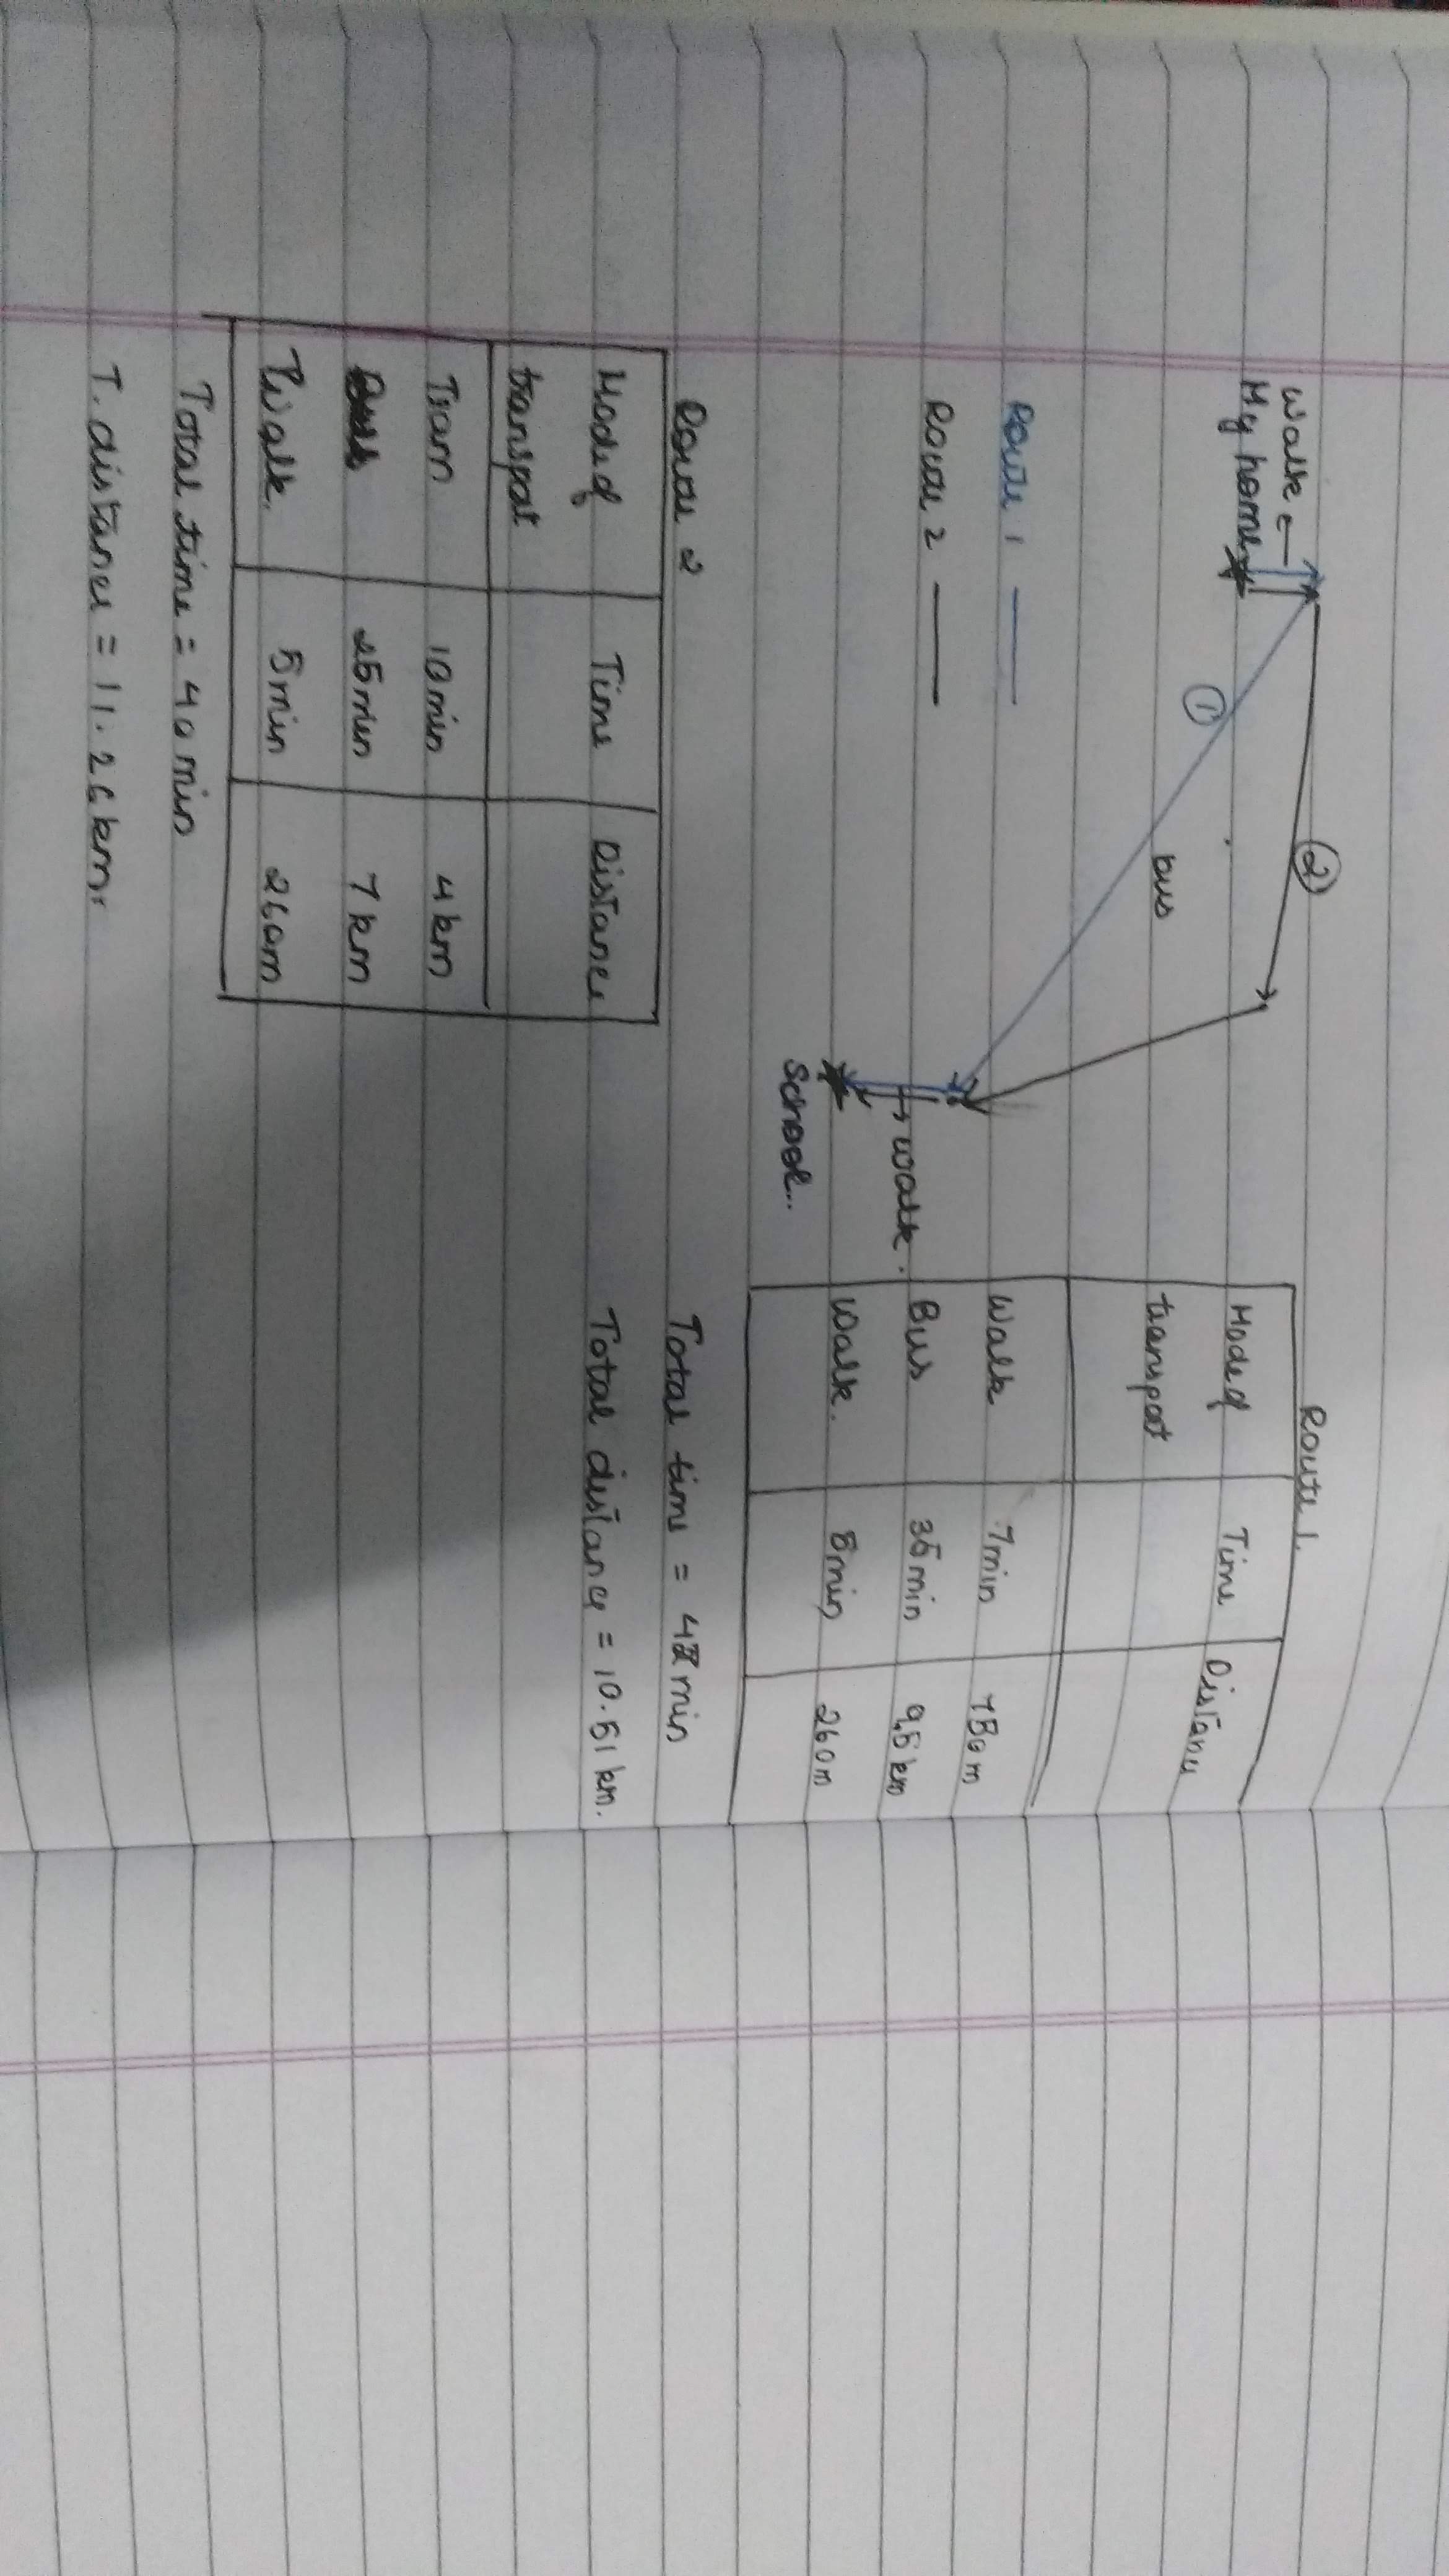 Route 1.
Walk ←
My home
②
①
bus
Route 1
Route 2
→ walk.
School..
Mode of Time Distance
transpot
Walk 7min 750m
Bus 35min 9.5km
Walk. 5min 260m
Total time = 4 min
Total distance = 10.51 km.
Route 2
Mode of Time Distance
transpot
Tram 10min 4km
25min 7km
Walk. 5min 260m
Total time = 40 min
T. distance = 11.26km.